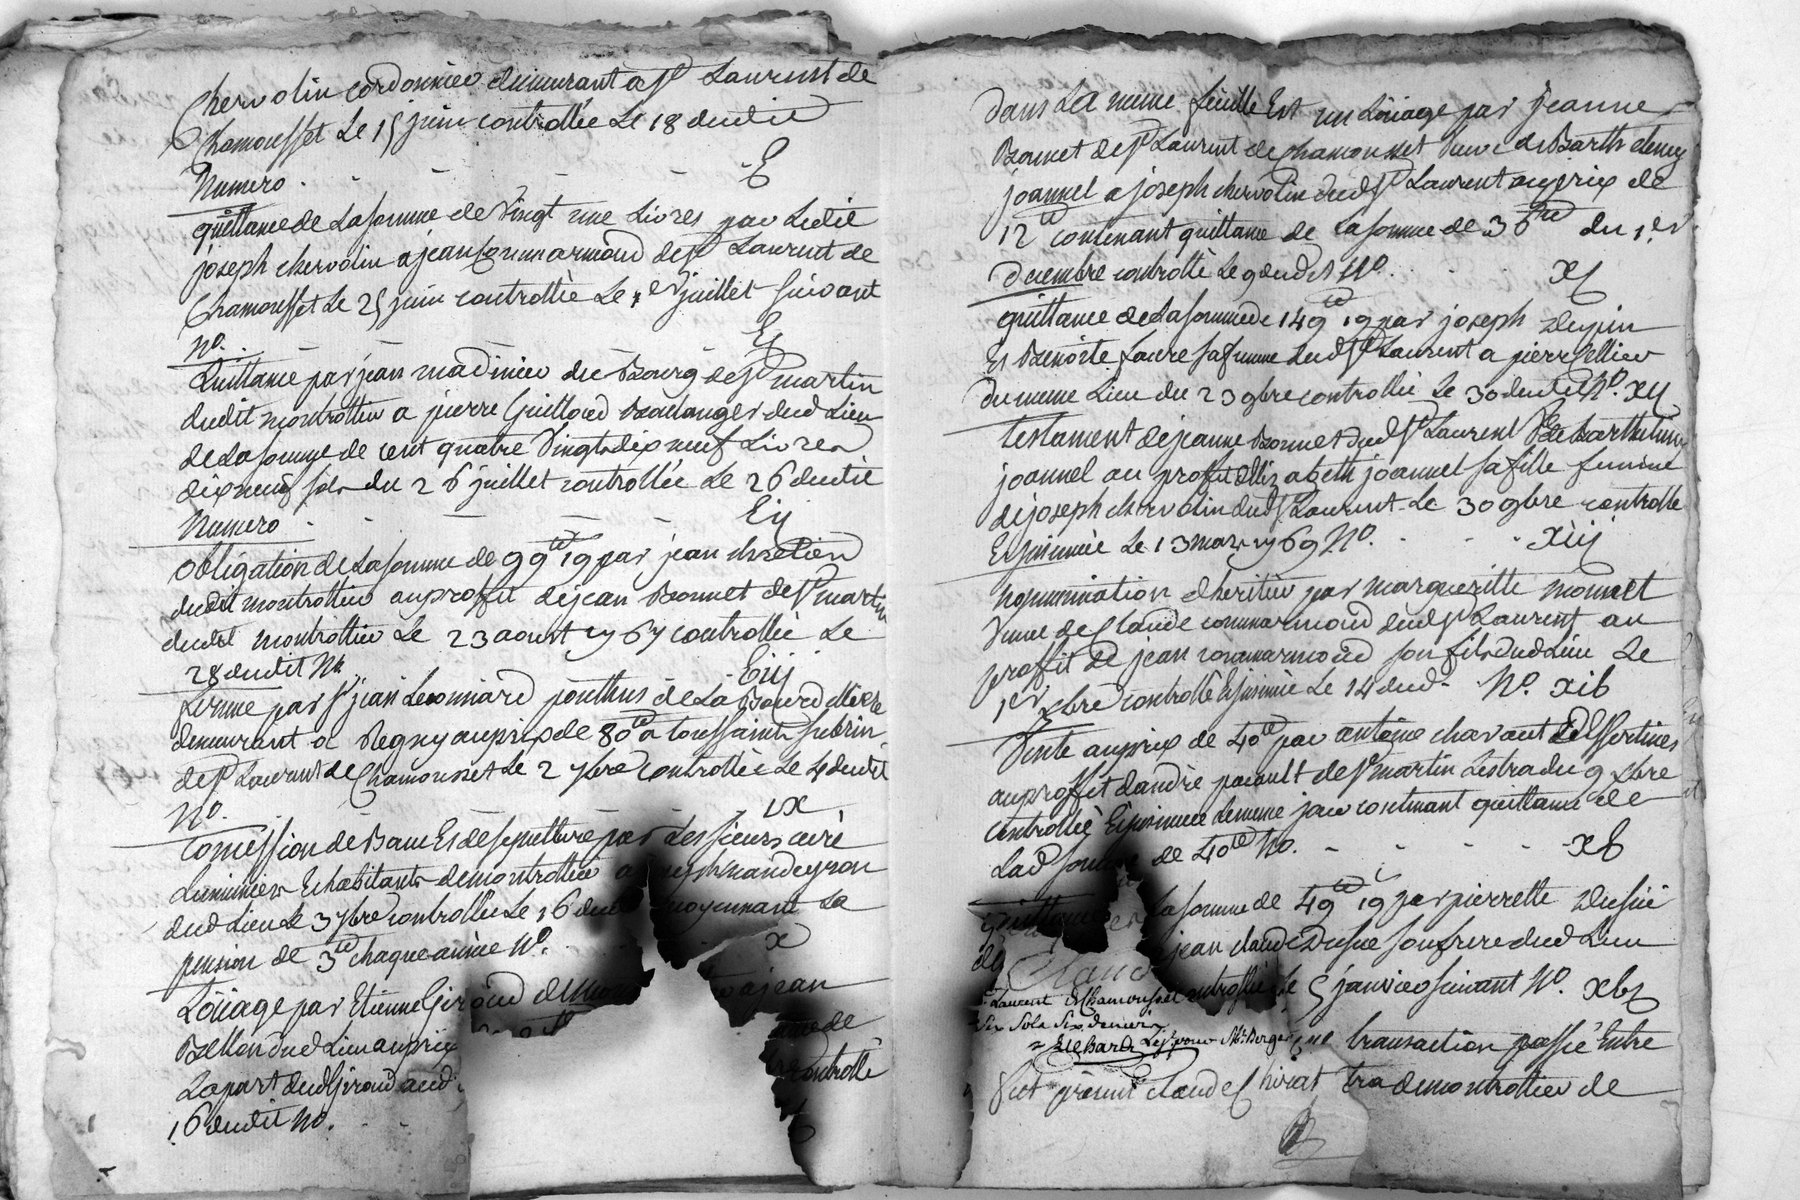 Chervolin cordonnier demeurant a St Laurent de
Chamousset Le 15 juin controllée Le 18 dudit
Numero
quittance de La somme de Vingt une Livres par Ledit
joseph chervolin a jean Commarmond de St Laurent de
Chamousset Le 25 juin controllée Le 1er juillet suivant
No.
Quittance par jean madinier du Bourg de St martin
dudit montrottier a pierre Guilloud Boulanger dud Lieu
de La somme de cent quatre Vingt dix neuf Livres
dix neuf sols du 26 juillet controllée Le 26 dudit
Numero
obligation de La somme de 99 lt 19 par jean chretien
dudit montrottier au proffit de jean Bonnet de St martin
dudit montrottier Le 23 aoust 1767 controllée Le
28 dudit No
ferme par Sr jean Leonnard ponthus de La Bourdelliere
demeurant a Regny au prix de 80 lt a toussaint subrin
de St Laurent de Chamousset Le 2 7bre controllée Le 4 dudit
No. ix
Concession de Banc Et de sepulture par Les sieurs curé
Luminiers Et habitants de montrottier a
dud Lieu Le 3 7bre controllée Le 16 dud moyennant La
pension de 3 lt chaque année No. x
Loüage par Etienne Giroud de a jean
dud Lieu au prix de
La part dud Giroud aud controllé
16 dudit No.
Dans La meme feuille Est un Loüage par jeanne
Bonnet de St Laurent de Chamousset veuve de Barthelemy
joannel a joseph chervolin dud St Laurent au prix de
12 lt contenant quittance de La somme de 36 lt du 1er
decembre controllé Le 9 dud No. xi
quittance de La somme de 149 lt 19 par joseph Dupin
Et Benoite faure sa femme dud St Laurent a pierre pellier
du meme Lieu du 23 9bre controllée Le 30 dudit No. xij
testament de jeanne Bonnet dud St Laurent Ve de Barthelemy
joannel au proffit d'Elizabeth joannel sa fille femme
de joseph chervolin dud St Laurent Le 30 9bre controllé
Et jnsinuée Le 13 mars 1769 No. xiij
nommination d'heritier par margueritte monnet
veuve de Claude commarmond dud St Laurent au
proffit de jean commarmond son fils dud Lieu Le
1er xbre controllé Et jnsinuée Le 14 dud. No. xiv
Vente au prix de 40 lt par antoine charvant d'Essertines
au proffit d'andré pacault de St martin Lestra du 9 xbre
controllée Et jnsinuée le meme jour contenant quittance de
Lad somme de 40 lt No. xv
Quittance de La somme de 49 lt 19 par pierrette Dussué
jean claude Dussue son frere dud Lieu
controllée Le 5 janvier suivant No. xvi
Laurent de Chamousset
Six Sols Six deniers
une transaction passée Entre
Sieur claude Chirat de montrottier de